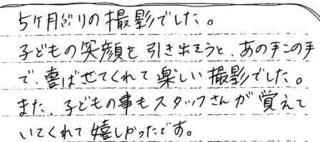 5ヶ月ぶりの撮影でした。
子どもの笑顔を引き出そうと、あの手この手
で、喜ばせてくれて楽しい撮影でした。
また、子どもの事もスタッフさんが覚えて
いてくれて嬉しかったです。